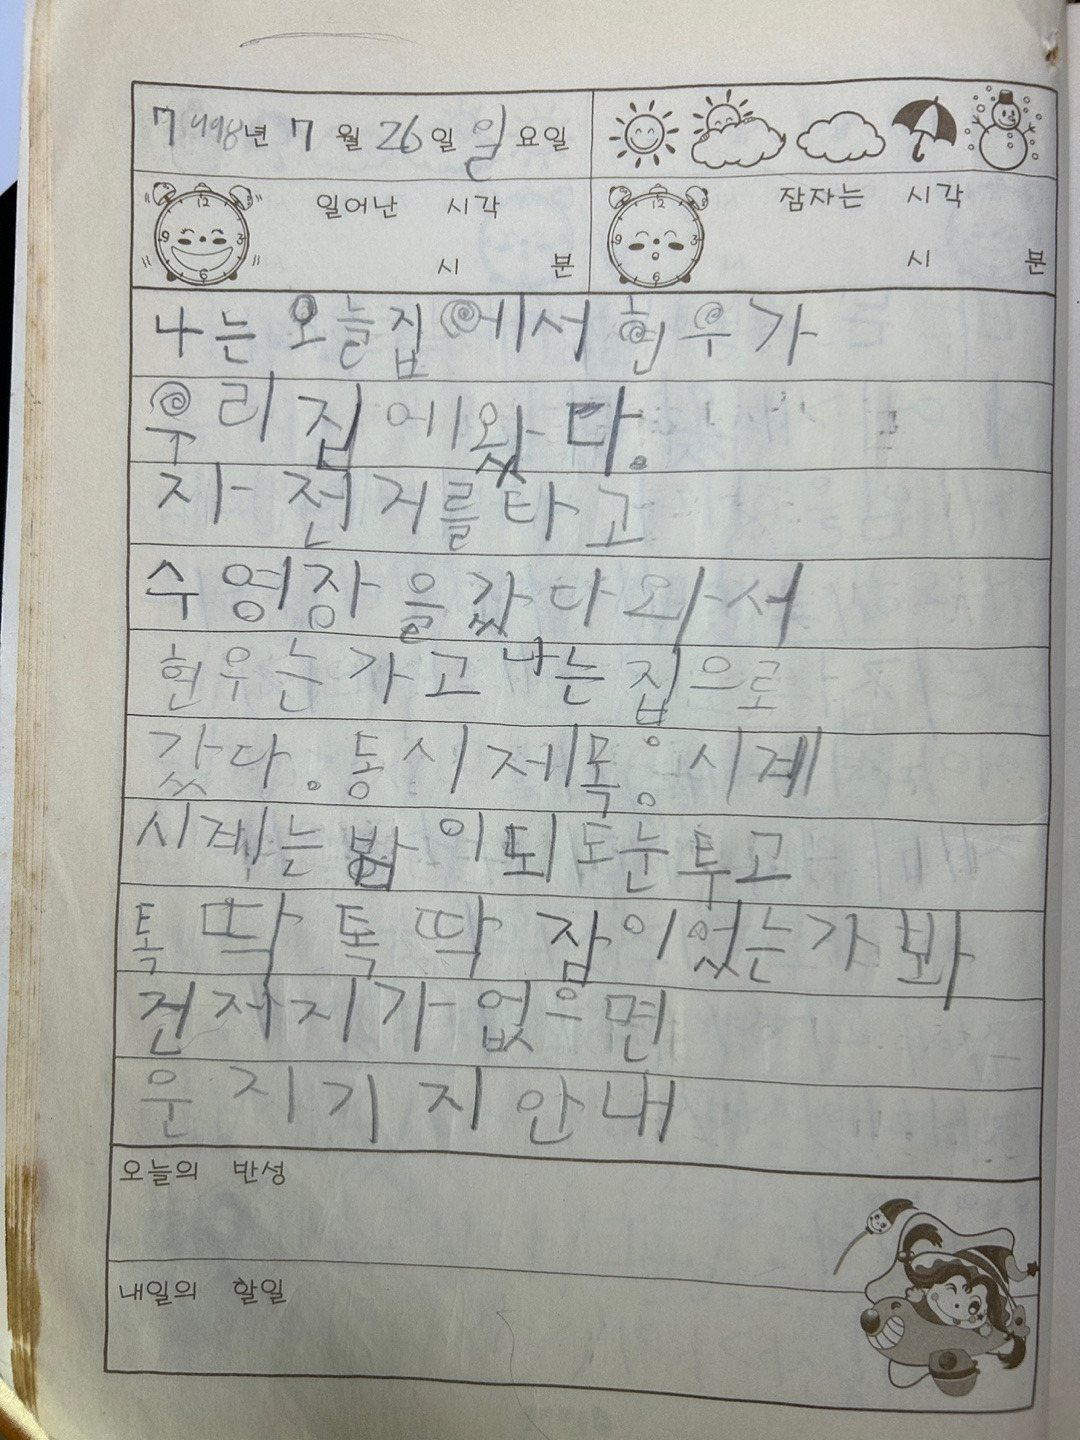 1998년 7월 26일 일요일
일어난 시각
시 분
잠자는 시각
시 분
나는 오늘 집에서 현우가
우리 집에 왔다.
자전거를 타고
수영장을 갔다 와서
현우는 가고 나는 집으로
갔다. 동시 제목 시계
시계는 밤이 되도 눈 투고
톡딱 톡딱 잠이 었는가 봐
건저지가 없으면
운지기지 안내
오늘의 반성
내일의 할일